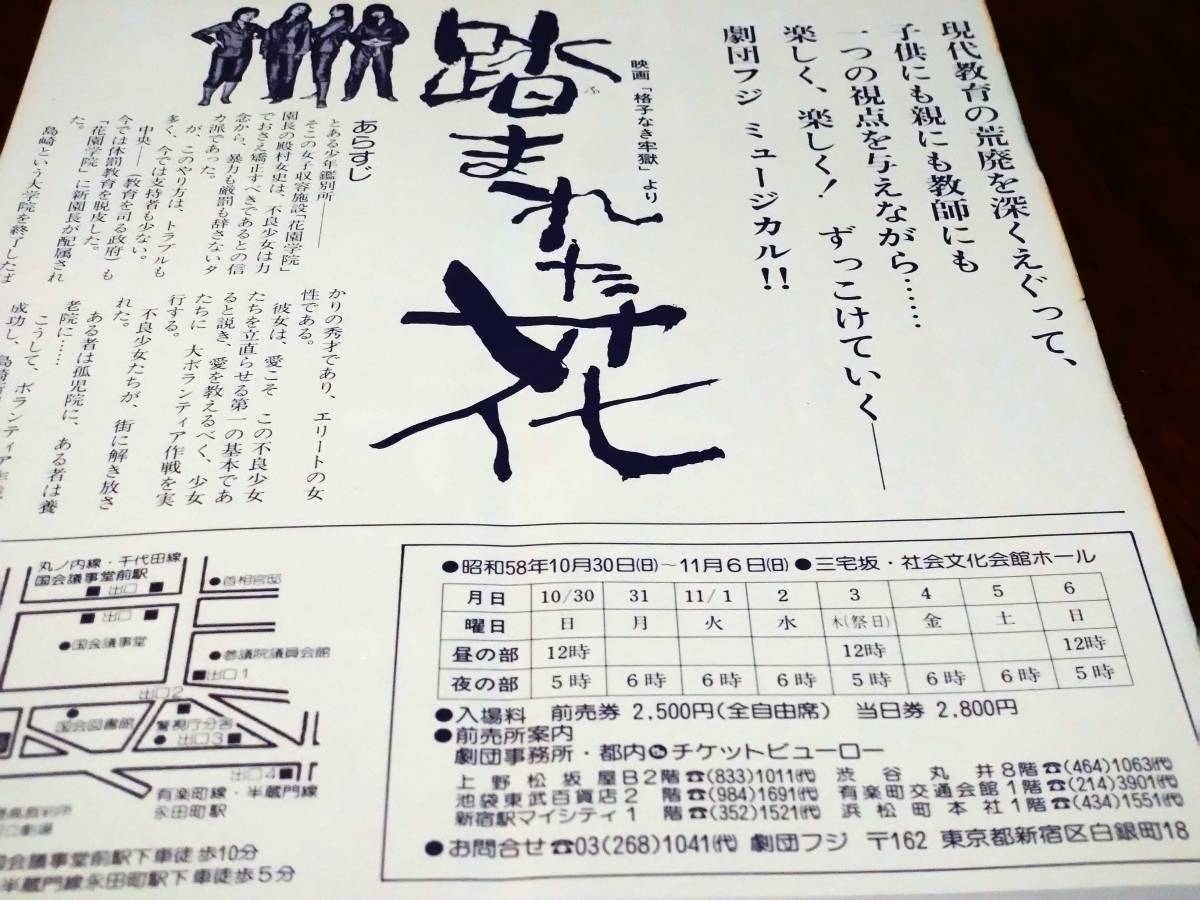 現代教育の荒廃を深くえぐって、
子供にも親にも教師にも
一つの視点を与えながら……
楽しく、楽しく! ずっこけていく――
劇団フジ ミュージカル!!
映画「格子なき牢獄」より
踏まれた花
ふ
あらすじ
とある少年鑑別所――
そこの女子収容施設「花園学院」
園長の殿村女史は、不良少女は力
でおさえ矯正すべきであるとの信
念から、暴力も厳罰も辞さないタ
カ派であった。
が、このやり方は、トラブルも
多く、今では支持者も少ない。
中央――(教育を司る政府)も
今では体罰教育を脱皮した。
「花園学院」に新園長が配属され
た。
島崎という大学院を終了したば
かりの秀才であり、エリートの女
性である。
彼女は、愛こそ この不良少女
たちを立直らせる第一の基本であ
ると説き、愛を教えるべく、少女
たちに 大ボランティア作戦を実
行する。
不良少女たちが、街に解き放さ
れた。
ある者は孤児院に、ある者は養
老院に……
こうして、ボランティア作戦
成功し、島崎
丸ノ内線・千代田線
国会議事堂前駅
出口
出口
●首相官邸
●国会議事堂
●参議院議員会館
出口1
出口2
国会図書館
警視庁分舎
出口3
出口4
有楽町線・半蔵門線
永田町駅
国会議事堂前駅下車徒歩10分
半蔵門線永田町駅下車徒歩5分
●昭和58年10月30日(日)~11月6日(日)●三宅坂・社会文化会館ホール
月日 10/30 31 11/1 2 3 4 5 6
曜日 日 月 火 水 木(祭日) 金 土 日
昼の部 12時 12時 12時
夜の部 5時 6時 6時 6時 5時 6時 6時 5時
●入場料 前売券 2,500円(全自由席) 当日券 2,800円
●前売所案内
劇団事務所・都内チケットビューロー
上野松坂屋B2階☎(833)1011㈹ 渋谷丸井8階☎(464)1063㈹
池袋東武百貨店2階☎(984)1691㈹ 有楽町交通会館1階☎(214)3901㈹
新宿駅マイシティ1階☎(352)1521㈹ 浜松町本社1階☎(434)1551㈹
●お問合せ☎03(268)1041㈹ 劇団フジ 〒162 東京都新宿区白銀町18